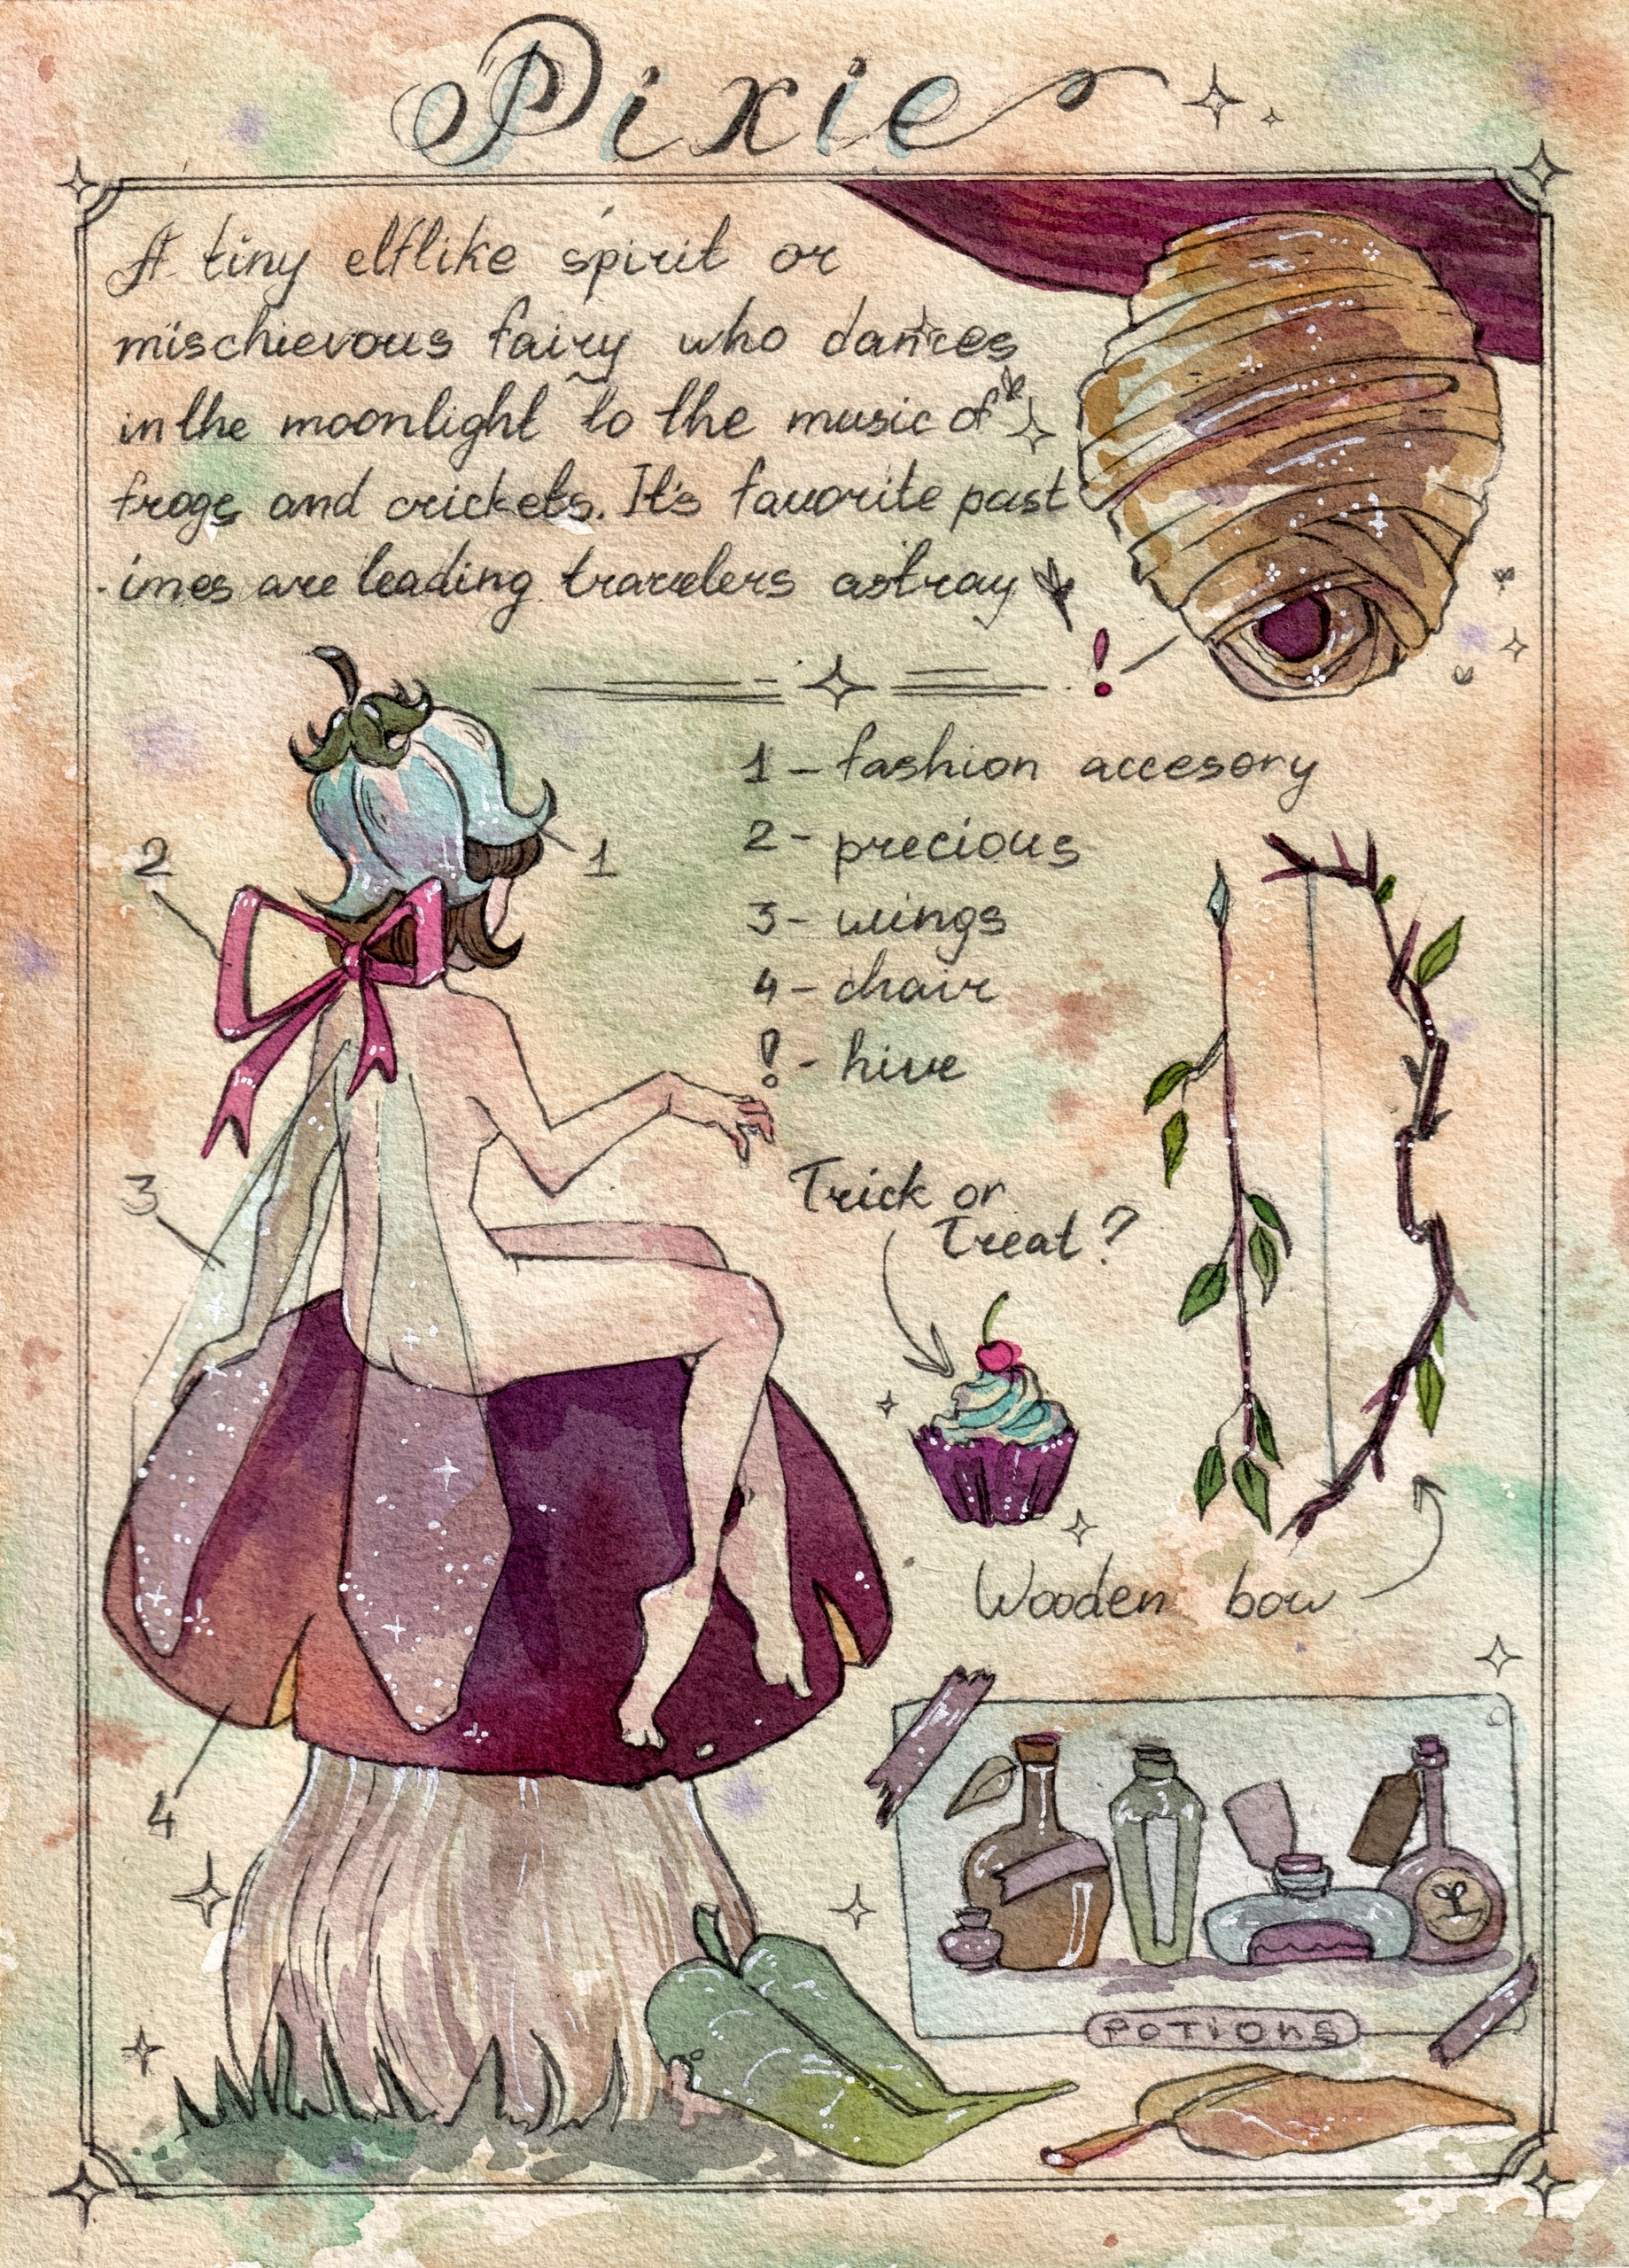 Pixie
A tiny elflike spirit or
mischievous fairy who dances
in the moonlight to the music of
frogs and crickets. It's favorite past
-imes are leading travelers astray
!
1 - fashion accesory
2 - precious
3 - wings
4 - chair
! - hive
1
2
3
4
Trick or
Treat?
Wooden bow
POTIONS